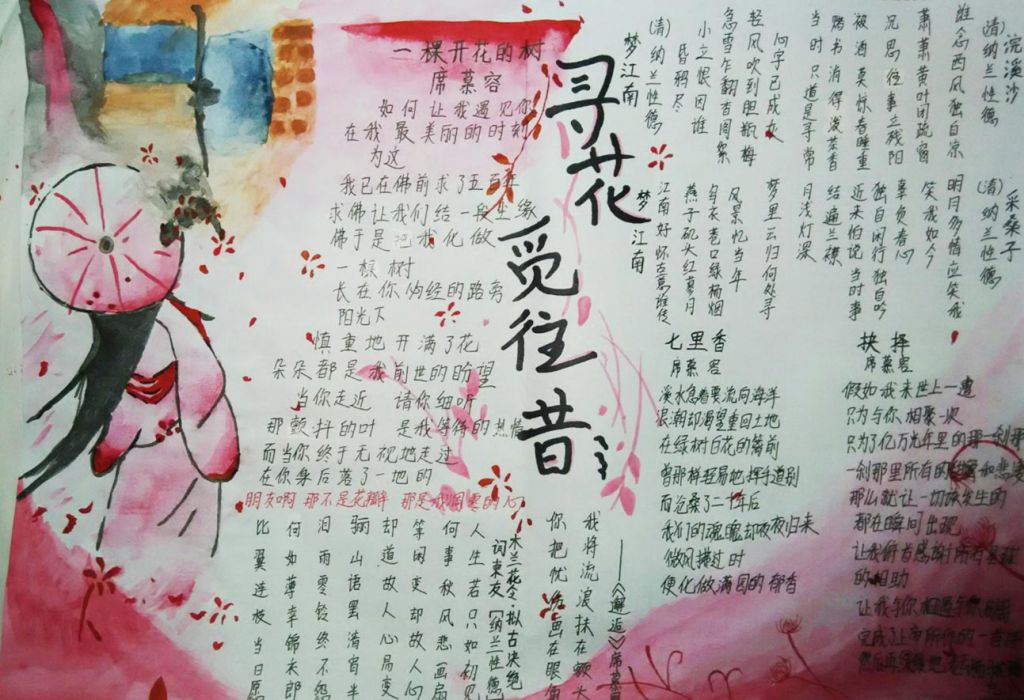 寻花
觅往昔
一棵开花的树
席慕容
如何让我遇见你
在我最美丽的时刻
为这
我已在佛前求了五百年
求佛让我们结一段尘缘
佛于是把我化做
一棵树
长在你必经的路旁
阳光下
慎重地开满了花
朵朵都是我前世的盼望
当你走近 请你细听
那颤抖的叶 是我等待的热情
而当你终于无视地走过
在你身后落了一地的
朋友啊 那不是花瓣 那是我凋零的心
浣溪沙
(清)纳兰性德
谁念西风独自凉
萧萧黄叶闭疏窗
沉思往事立残阳
被酒莫惊春睡重
赌书消得泼茶香
当时只道是寻常
梦江南
(清)纳兰性德
昏鸦尽
小立恨因谁
急雪乍翻香阁絮
轻风吹到胆瓶梅
心字已成灰
采桑子
(清)纳兰性德
明月多情应笑我
笑我如今
辜负春心
独自闲行独自吟
近来怕说当时事
结遍兰襟
月浅灯深
梦里云归何处寻
梦江南
江南好怀古
燕子矶头红蓼月
乌衣巷口绿杨烟
风景忆当年
七里香
席慕容
溪水急着要流向海洋
浪潮却渴望重回土地
在绿树白花的篱前
曾那样轻易地挥手道别
而沧桑了二十年后
我们的魂魄却夜夜归来
微风拂过时
便化做满园的郁香
抉择
席慕容
假如我来世上一遭
只为与你相聚一次
只为了亿万光年里的那一刹那
一刹那里所有的甜蜜和悲凄
那么就让一切该发生的
都在瞬间出现
让我俯首感谢所有星球
的相助
让我与你相遇与你
完成了上帝所作的一首诗
然后再缓缓地
木兰花令·拟古决绝
词柬友(纳兰性德
人生若只如初见
何事秋风悲画扇
等闲变却故人心
却道故人心易变
骊山语罢清宵半
泪雨零铃终不怨
何如薄幸锦衣郎
比翼连枝当日愿
我将流浪抹在额
你把忧伤画在眼角
——《邂逅》席慕容